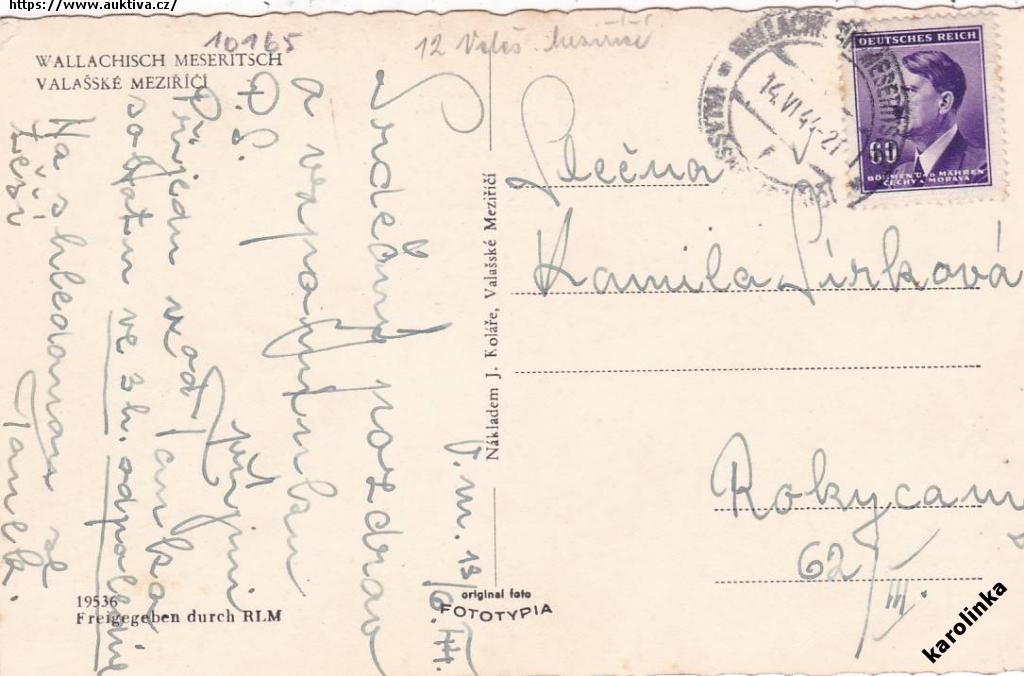 https://www.auktiva.cz/
10165
12 Valaš. Meziříčí
WALLACHISCH MESERITSCH
VALAŠSKÉ MEZIŘÍČÍ
V. M. 13/6.44.
Srdečný pozdrav
a vzpomínku
P. S.
Přijedu
sobotu ve 3 h. odpoledne
Na shledanou se
těší
Janek.
19536
Freigegeben durch RLM
Nákladem J. Koláře, Valašské Meziříčí
original foto
FOTOTYPIA
14.VI.44-21
DEUTSCHES REICH
60
BÖHMEN UND MÄHREN
ČECHY A MORAVA
Slečna
Kamila Širková
Rokycany
62/III.
karolinka